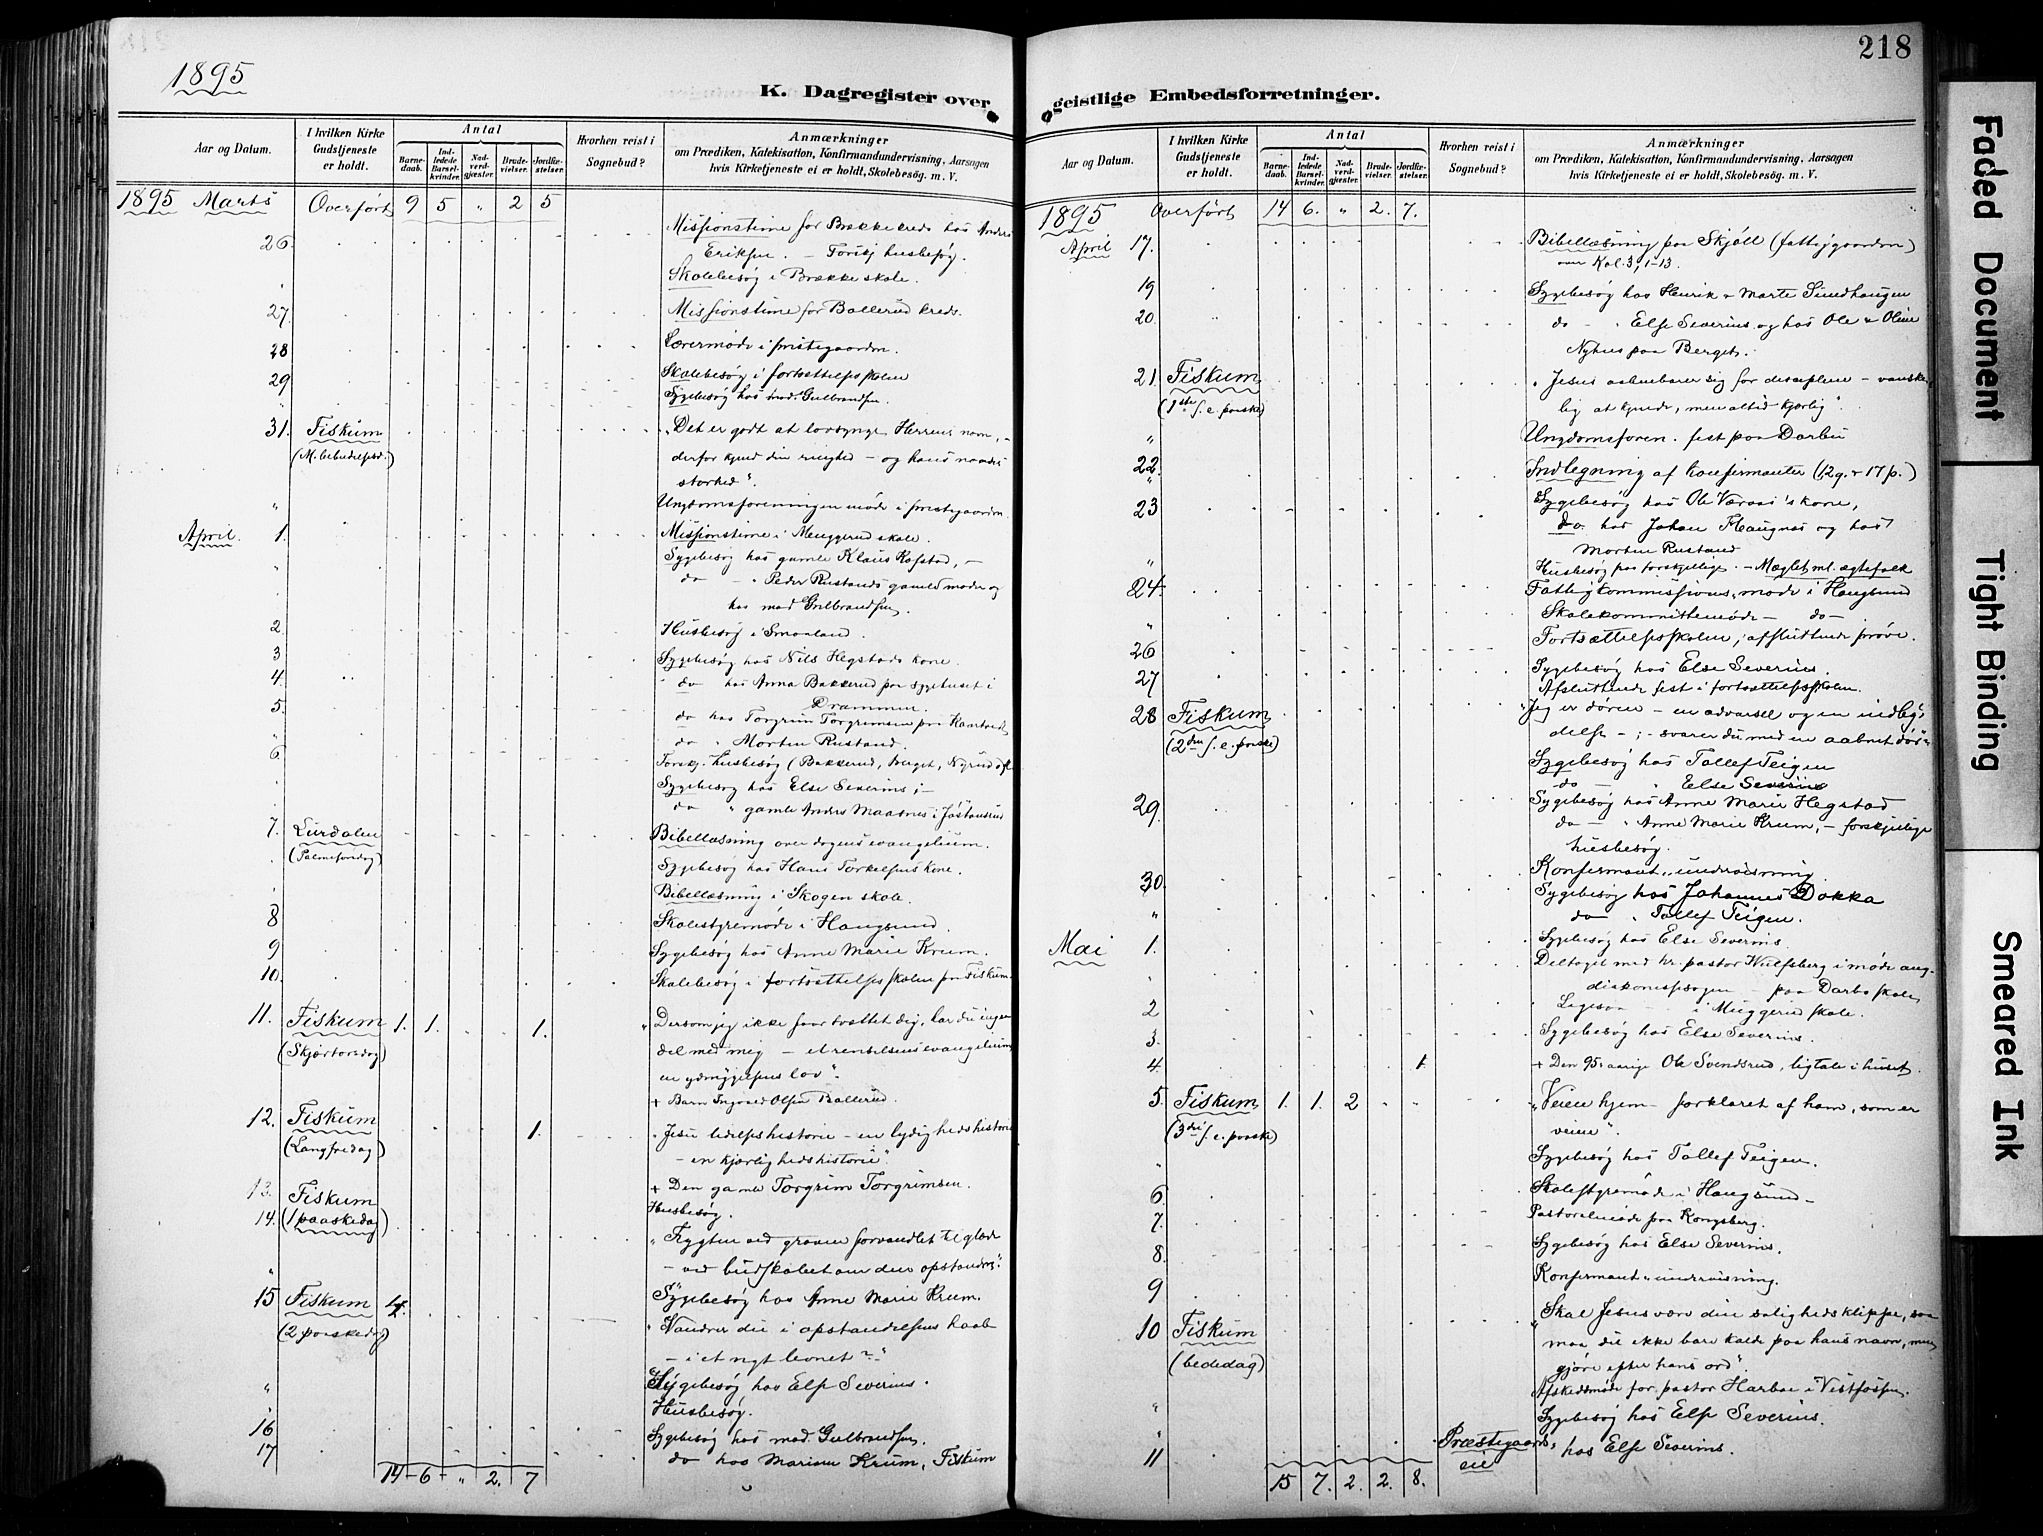 218
1895
K. Dagregister over geistlige Embedsforretninger.
Aar og Datum.
I hvilken Kirke Gudstjeneste er holdt.
Antal
Barnedaab.
Indledede Barselkvinder.
Nadverdgjæster.
Brudevielser.
Jordfæstelser.
Hvorhen reist i Sognebud?
Anmærkninger
om Prædiken, Katekisation, Konfirmandundervisning, Aarsagen
hvis Kirketjeneste ei er holdt, Skolebesøg. m. V.
1895 Marts Overført 9 5 " 2 5
26. Missionstime for Brække kreds hos Anders
Eriksen. - Forskj husbesøg.
Skolebesøg i Brække skole.
27. Missionstime for Ballerud kreds.
28 Lærermøde i prestegaarden.
29 Skolebesøg i fortsættelsesskolen
Sygebesøg hos mad. Gulbrandsen.
31. Fiskum "Det er godt at lovsynge Herrens navn, -
(M. bebudelsesd.) derfor kjend din ringhed - og hans naades
storhed".
" Ungdomsforeningen møde i prestegaarden.
April 1. Missionstime i Muggerud skole.
Sygebesøg hos gamle Klaus Kofstad, -
do - " Peder Rustands gamle moder og
hos mad Gulbrandsen.
2. Husbesøg i Smaaland.
3 Sygebesøg hos Nils Hegstads kone.
4. do hos Anna Bakkerud paa sygehuset i
Drammen.
5. do hos Torgrim Torgrimsen paa
" do " Morten Rustand.
6 Forskj. husbesøg (Bakkerud,
Sygebesøg hos Else Severins; -
do " gamle Anders Maasnes i
7. Lurdalen Bibellæsning over dagens evangelium.
(Palmesøndag)
Sygebesøg hos Hans Torkelsens kone.
Bibellæsning i Skogen skole.
8 Skolestyremøde i Hougsund.
9 Sygebesøg hos Anne Marie Krum.
10. Skolebesøg i fortsættelsesskolen paa Fiskum.
11. Fiskum 1. 1. 1. "Dersom jeg ikke faar tvættet dig, har du ingen
(Skjærtorsdag) del med meg - et renselsens evangelium,
en ydmygelsens lov".
+ Barn Ingvald Olsen Ballerud.
12. Fiskum 1. "Jesu lidelseshistorie - en lydighedshistorie
(Langfredag) - en kjærlighedshistorie".
+ Den gamle Torgrim Torgrimsen.
13. Husbesøg.
14. Fiskum (1 paaskedag) "Frygten ved graven forvandlet til glæde
- ved budskabet om den opstandne".
" Sygebesøg hos Anne Marie Krum.
15 Fiskum 4. "Vandrer du i opstandelsens haab
(2 paaskedag) - i et nyt levnet?"
" Sygebesøg hos Else Severins.
Husbesøg.
16 Sygebesøg hos mad. Gulbrandsen.
17 do hos Marien Krum, Fiskum
14 - 6 - " 2. 7
Aar og Datum.
I hvilken Kirke Gudstjeneste er holdt.
Antal
Barnedaab.
Indledede Barselkvinder.
Nadverdgjæster.
Brudevielser.
Jordfæstelser.
Hvorhen reist i Sognebud?
Anmærkninger
om Prædiken, Katekisation, Konfirmandundervisning, Aarsagen
hvis Kirketjeneste ei er holdt, Skolebesøg. m. V.
1895 Overført 14 6. " 2. 7.
April 17. Bibellæsning paa Skjøll (fattiggaarden)
over Kol. 3, 1-13.
19 Sygebesøg hos Henrik & Marte Sundhaugen
20. do - " Else Severins og hos Ole & Oline
Nyhus paa Berget.
21 Fiskum "Jesus aabenbarer sig for disciplene - vanske
(1ste s. e. paaske) lig at kjende, men altid kjærlig".
" Ungdomsforen. fest paa Darbu
22 Indlegning af konfirmanter (12g. + 17p.)
23 Sygebesøg hos Ole kone,
do. hos Johan Haugnes og hos
Morten Rustand
" Husbesøg paa forskjellige. - Mæglet ml. egtefolk
24 Fattigkommissions møde i Hougsund
Skolekommittemøde - do -
26 Fortsættelsesskolen, afsluttende prøve.
27 Sygebesøg hos Else Severins.
Afsluttende fest i fortsættelsesskolen.
28 Fiskum "Jeg er døren - en advarsel og en indby-
(2den s. e. paaske) delse - ; - svarer du med en aabnet dør"
Sygebesøg hos Tollef Teigen
do - " Else Severins
29. Sygebesøg hos Anne Marie Hegstad
do - " Anne Marie Krum, - forskjellige
husbesøg.
30. Konfirmantundervisning.
Sygebesøg hos Johannes Dokka
" do " Tollef Teigen.
Mai 1. Sygebesøg hos Else Severins.
" Deltaget med hr. pastor Wulfsberg i møde ang.
diakonissesagen - paa Darbo skole
2 Ligesaa - i Muggerud skole.
3. Sygebesøg hos Else Severins.
4. 1 + Den 95-aarige Ole Svendsrud, ligtale i huset.
5. Fiskum 1. 1. 2 "Veien hjem - forklaret af ham, som er
(3die s. e. paaske) veien".
" Sygebesøg hos Tollef Teigen.
6. Skolestyremøde i Hougsund -
7. Pastoralmøde paa Kongsberg.
8. Sygebesøg hos Else Severins.
9 Konfirmantundervisning.
10 Fiskum "Skal Jesus være din saligheds klippe, saa
(bededag) maa du ikke bare kalde paa hans navn, men
gjøre efter hans ord".
Afskedsmøde for pastor Harboe i Vestfossen.
" Sygebesøg hos Else Severins.
11 Præstegaards- eie " hos Else Severins.
15 7. 2. 2. 8.
Faded Document
Tight Binding
Smeared Ink